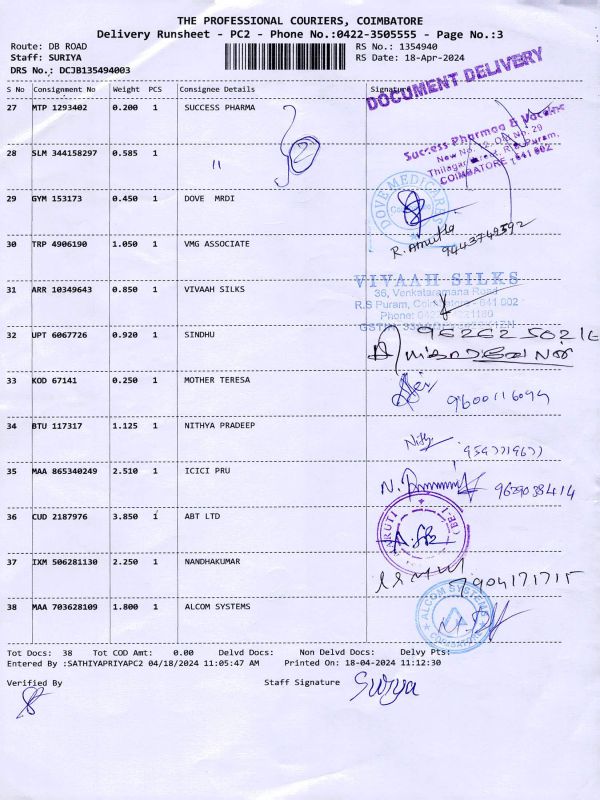 THE PROFESSIONAL COURIERS, COIMBATORE
Delivery Runsheet - PC2 - Phone No.:0422-3505555 - Page No.:3
Route: DB ROAD RS No.: 1354940
Staff: SURIYA RS Date: 18-Apr-2024
DRS No.: DCJB135494003
DOCUMENT DELIVERY
S No Consignment No Weight PCS Consignee Details Signature
27 MTP 1293402 0.200 1 SUCCESS PHARMA
Success Pharmaa & Vaccine
28 SLM 344158297 0.585 1 "
COIMBATORE - 641 002
29 GYM 153173 0.450 1 DOVE MRDI
DOVE MEDICARES
R. Amutha
9443748592
30 TRP 4906190 1.050 1 VMG ASSOCIATE
31 ARR 10349643 0.850 1 VIVAAH SILKS
VIVAAH SILKS
36, Venkataramana Road
R.S Puram, Coimbatore - 641 002
Phone:
32 UPT 6067726 0.920 1 SINDHU
33 KOD 67141 0.250 1 MOTHER TERESA
34 BTU 117317 1.125 1 NITHYA PRADEEP
35 MAA 865340249 2.510 1 ICICI PRU
9629038414
36 CUD 2187976 3.850 1 ABT LTD
MARUTI
37 IXM 506281130 2.250 1 NANDHAKUMAR
7904171715
38 MAA 703628109 1.800 1 ALCOM SYSTEMS
ALCOM SYSTEMS
COIMBATORE
Tot Docs: 38 Tot COD Amt: 0.00 Delvd Docs: Non Delvd Docs: Delvy Pts:
Entered By :SATHIYAPRIYAPC2 04/18/2024 11:05:47 AM Printed On: 18-04-2024 11:12:30
Verified By Staff Signature Suriya